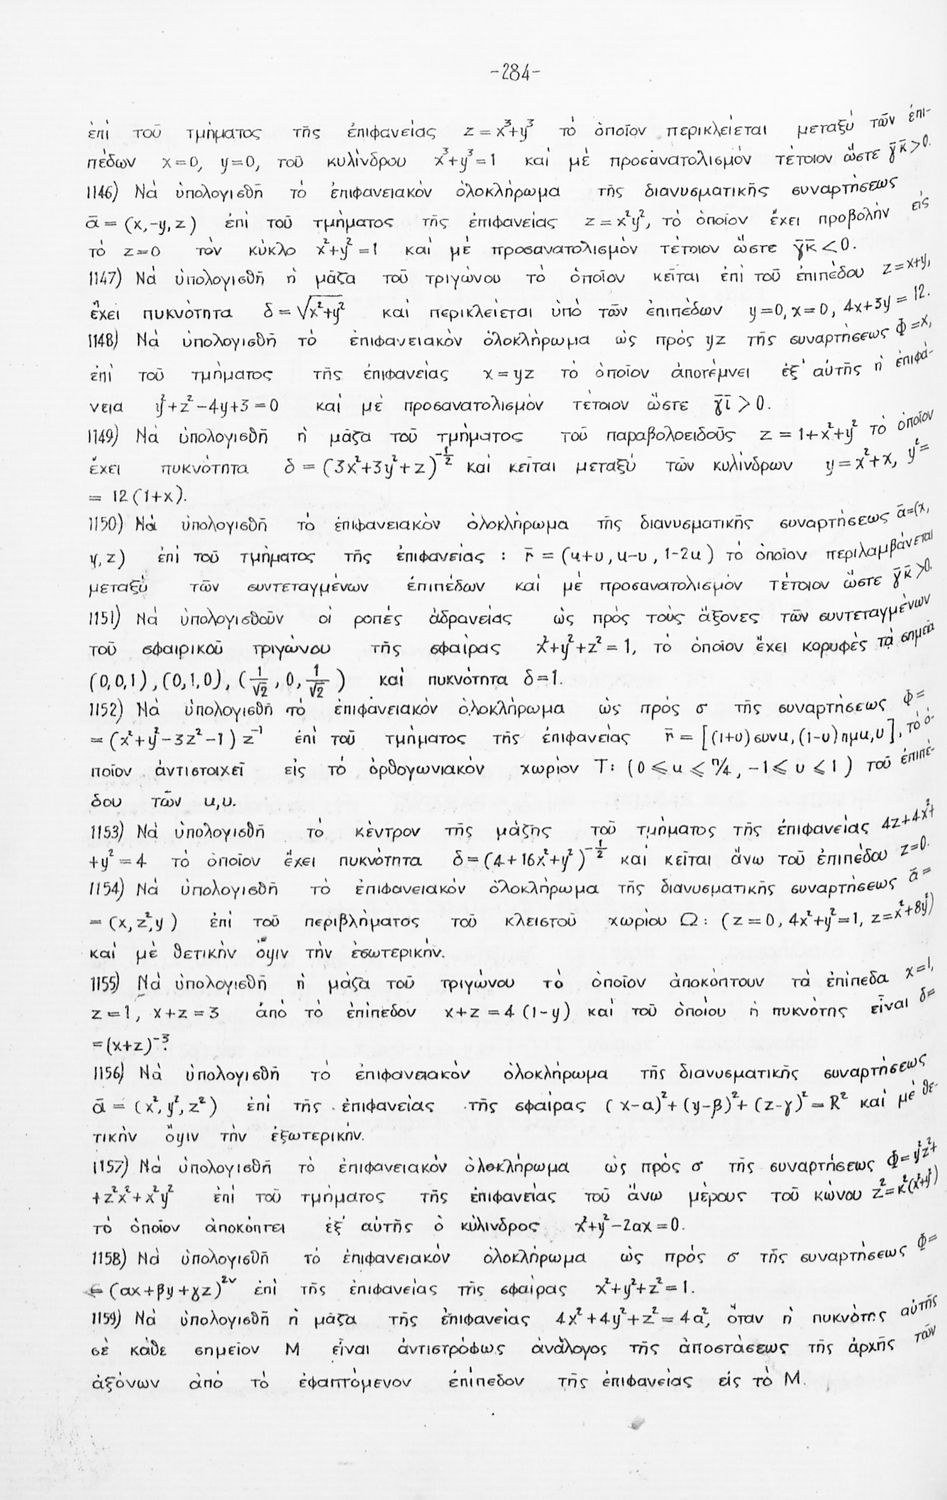 -284-
ἐπί τοῦ τμήματος τῆς ἐπιφανείας z = x³+y³ τό ὁποῖον περικλείεται μεταξύ τῶν ἐπι-
πέδων x=0, y=0, τοῦ κυλίνδρου x³+y³=1 καί μέ προσανατολισμόν τέτοιον ὥστε γ̄κ̄>0.
1146) Νά ὑπολογισθῆ τό ἐπιφανειακόν ὁλοκλήρωμα τῆς διανυσματικῆς συναρτήσεως
ᾱ = (x,-y,z) ἐπί τοῦ τμήματος τῆς ἐπιφανείας z = x²y², τό ὁποῖον ἔχει προβολήν εἰς
τό z=0 τόν κύκλο x²+y²=1 καί μέ προσανατολισμόν τέτοιον ὥστε γ̄κ̄<0.
1147) Νά ὑπολογισθῆ ἡ μᾶζα τοῦ τριγώνου τό ὁποῖον κεῖται ἐπί τοῦ ἐπιπέδου z=x+y,
ἔχει πυκνότητα δ = √x²+y² καί περικλείεται ὑπό τῶν ἐπιπέδων y=0, x=0, 4x+3y = 12.
1148) Νά ὑπολογισθῆ τό ἐπιφανειακόν ὁλοκλήρωμα ὡς πρός yz τῆς συναρτήσεως Φ=x,
ἐπί τοῦ τμήματος τῆς ἐπιφανείας x = yz τό ὁποῖον ἀποτέμνει ἐξ' αὐτῆς ἡ ἐπιφά-
νεια y²+z²-4y+3=0 καί μέ προσανατολισμόν τέτοιον ὥστε γ̄ῑ>0.
1149) Νά ὑπολογισθῆ ἡ μᾶζα τοῦ τμήματος τοῦ παραβολοειδοῦς z = 1+x²+y² τό ὁποῖον
ἔχει πυκνότητα δ = (3x²+3y²+z)^{-1/2} καί κεῖται μεταξύ τῶν κυλίνδρων y=x²+x, y²=
= 12(1+x).
1150) Νά ὑπολογισθῆ τό ἐπιφανειακόν ὁλοκλήρωμα τῆς διανυσματικῆς συναρτήσεως ᾱ=(x,
y,z) ἐπί τοῦ τμήματος τῆς ἐπιφανείας : r̄ = (u+υ, u-υ, 1-2u) τό ὁποῖον περιλαμβάνεται
μεταξύ τῶν συντεταγμένων ἐπιπέδων καί μέ προσανατολισμόν τέτοιον ὥστε γ̄κ̄>0.
1151) Νά ὑπολογισθοῦν οἱ ροπές ἀδρανείας ὡς πρός τούς ἄξονες τῶν συντεταγμένων
τοῦ σφαιρικοῦ τριγώνου τῆς σφαίρας x²+y²+z²=1, τό ὁποῖον ἔχει κορυφές τά σημεῖα
(0,0,1), (0,1,0), (1/√2, 0, 1/√2) καί πυκνότητα δ=1.
1152) Νά ὑπολογισθῆ τό ἐπιφανειακόν ὁλοκλήρωμα ὡς πρός σ τῆς συναρτήσεως Φ=
=(x²+y²-3z²-1)z⁻¹ ἐπί τοῦ τμήματος τῆς ἐπιφανείας r̄ = [(1+υ)συνu, (1-υ)ημu, υ], τό ὁ-
ποῖον ἀντιστοιχεῖ εἰς τό ὀρθογωνιακόν χωρίον T: (0⩽u⩽π/4, -1⩽υ⩽1) τοῦ ἐπιπέ-
δου τῶν u,υ.
1153) Νά ὑπολογισθῆ τό κέντρον τῆς μάζης τοῦ τμήματος τῆς ἐπιφανείας 4z+4x²+
+y²=4 τό ὁποῖον ἔχει πυκνότητα δ=(4+16x²+y²)^{-1/2} καί κεῖται ἄνω τοῦ ἐπιπέδου z=0.
1154) Νά ὑπολογισθῆ τό ἐπιφανειακόν ὁλοκλήρωμα τῆς διανυσματικῆς συναρτήσεως ᾱ=
=(x,z²,y) ἐπί τοῦ περιβλήματος τοῦ κλειστοῦ χωρίου Ω: (z=0, 4x²+y²=1, z=x²+8y²)
καί μέ θετικήν ὄψιν τήν ἐσωτερικήν.
1155) Νά ὑπολογισθῆ ἡ μᾶζα τοῦ τριγώνου τό ὁποῖον ἀποκόπτουν τά ἐπίπεδα x=1,
z=1, x+z=3 ἀπό τό ἐπίπεδον x+z=4(1-y) καί τοῦ ὁποίου ἡ πυκνότης εἶναι δ=
=(x+z)⁻³.
1156) Νά ὑπολογισθῆ τό ἐπιφανειακόν ὁλοκλήρωμα τῆς διανυσματικῆς συναρτήσεως
ᾱ = (x²,y²,z²) ἐπί τῆς ἐπιφανείας τῆς σφαίρας (x-α)²+(y-β)²+(z-γ)²=R² καί μέ θε-
τικήν ὄψιν τήν ἐξωτερικήν.
1157) Νά ὑπολογισθῆ τό ἐπιφανειακόν ὁλοκλήρωμα ὡς πρός σ τῆς συναρτήσεως Φ=y²z²+
+z²x²+x²y² ἐπί τοῦ τμήματος τῆς ἐπιφανείας τοῦ ἄνω μέρους τοῦ κώνου z²=κ²(x²+y²)
τό ὁποῖον ἀποκόπτει ἐξ' αὐτῆς ὁ κύλινδρος x²+y²-2αx=0.
1158) Νά ὑπολογισθῆ τό ἐπιφανειακόν ὁλοκλήρωμα ὡς πρός σ τῆς συναρτήσεως Φ=
=(αx+βy+γz)²ᵛ ἐπί τῆς ἐπιφανείας τῆς σφαίρας x²+y²+z²=1.
1159) Νά ὑπολογισθῆ ἡ μᾶζα τῆς ἐπιφανείας 4x²+4y²+z²=4α², ὅταν ἡ πυκνότης αὐτῆς
σέ κάθε σημεῖον Μ εἶναι ἀντιστρόφως ἀνάλογος τῆς ἀποστάσεως τῆς ἀρχῆς τῶν
ἀξόνων ἀπό τό ἐφαπτόμενον ἐπίπεδον τῆς ἐπιφανείας εἰς τό Μ.